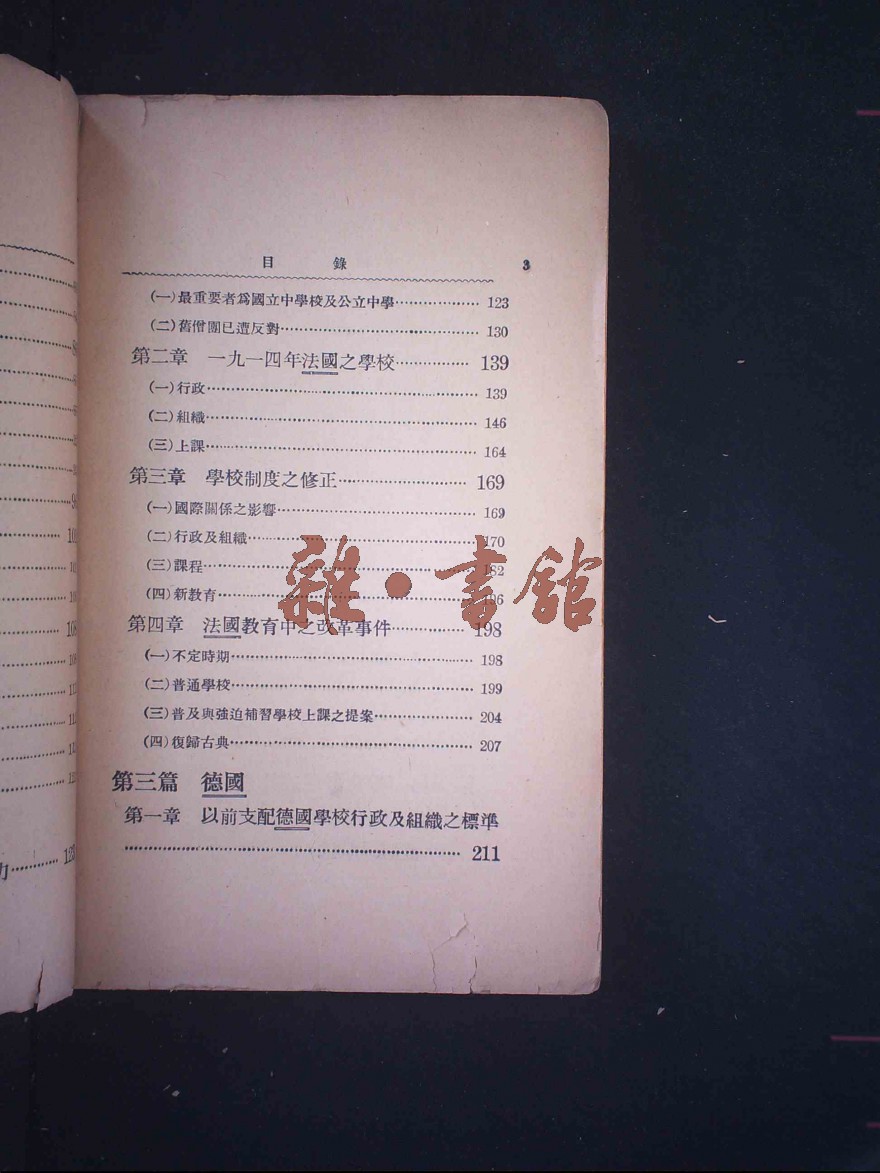 目 錄 3
(一)最重要者爲國立中學校及公立中學 123
(二)舊僧團已遭反對 130
第二章 一九一四年法國之學校 139
(一)行政 139
(二)組織 146
(三)上課 164
第三章 學校制度之修正 169
(一)國際關係之影響 169
(二)行政及組織 170
(三)課程 182
(四)新教育
第四章 法國教育中之改革事件 198
(一)不定時期 198
(二)普通學校 199
(三)普及與強迫補習學校上課之提案 204
(四)復歸古典 207
第三篇 德國
第一章 以前支配德國學校行政及組織之標準
211
雜·書館